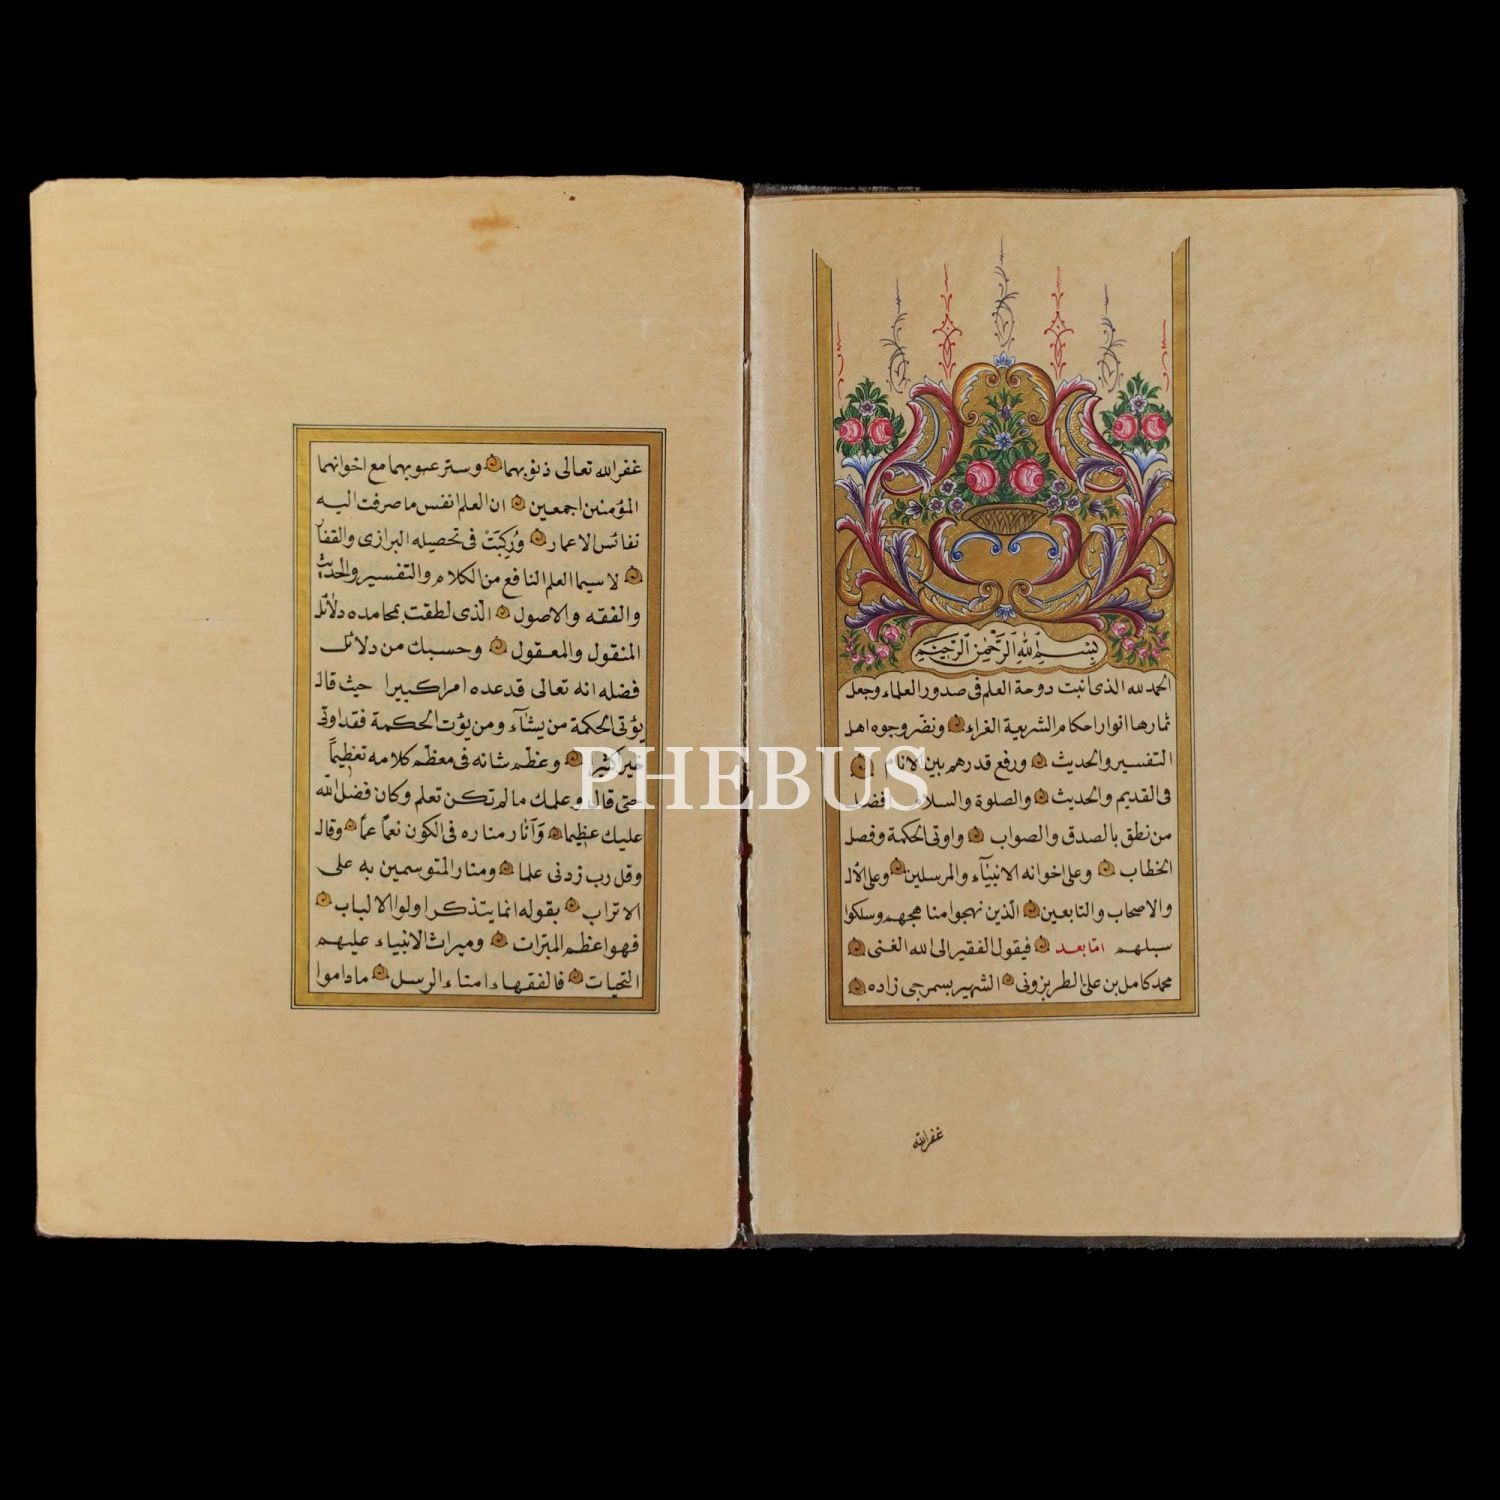 بِسْمِ اللّٰهِ الرَّحْمٰنِ الرَّحِيمِ
الحمد لله الذى انبت دوحة العلم فى صدور العلماء وجعل
ثمارها انوار احكام الشريعة الغراء ونضر وجوه اهل
التفسير والحديث ورفع قدرهم بين الانام
فى القديم والحديث والصلوة والسلام افضل
من نطق بالصدق والصواب واوتى الحكمة وفصل
الخطاب وعلى اخوانه الانبيآء والمرسلين وعلى الال
والاصحاب والتابعين الذين نهجوا مناهجهم وسلكوا
سبلهم امّا بعد فيقول الفقير الى الله الغنى
محمد كامل بن على الطربزونى الشهير بسمرجى زاده
غفر الله
غفر الله تعالى ذنوبهما وستر عيوبهما مع اخوانهما
المؤمنين اجمعين ان العلم انفس ما صرفت اليه
نفائس الاعمار وَرُكِبَتْ فى تحصيله البرازى والقفار
لا سيما العلم النافع من الكلام والتفسير والحديث
والفقه والاصول الّذى نطقت بمحامده دلائل
المنقول والمعقول وحسبك من دلائل
فضله انه تعالى قد عده امرا كبيرا حيث قال
يؤتى الحكمة من يشآء ومن يؤت الحكمة فقد اوتى
خيرا كثيرا وعظم شانه فى معظم كلامه تعظيماً
حتى قال وعلمك ما لم تكن تعلم وكان فضل الله
عليك عظيما وَآنار مناره فى الكون نعمّا عمّا وقال
وقل رب زدنى علما ومنار المتوسمين به على
الاتراب بقوله انما يتذكر اولوا الالباب
فهو اعظم المبرّات وميراث الانبياء عليهم
التحيات فالفقهاء امناء الرسل ما داموا
PHEBUS